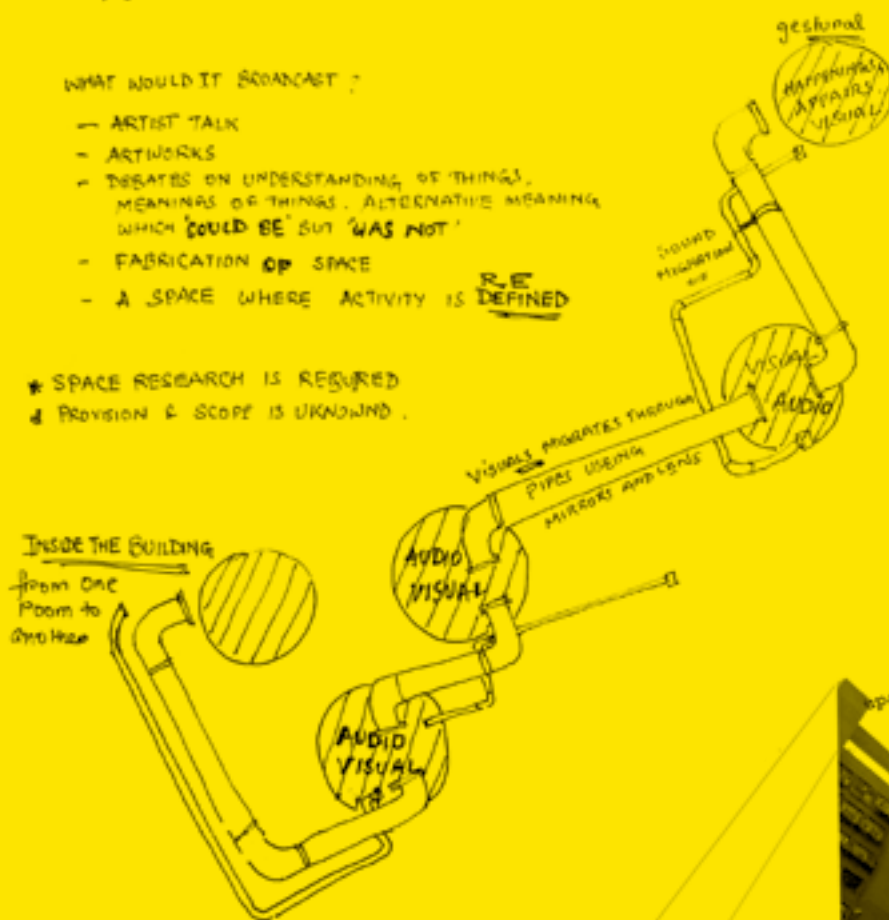 WHAT WOULD IT BROADCAST ?
- ARTIST TALK
- ARTWORKS
- DEBATES ON UNDERSTANDING OF THINGS.
MEANINGS OF THINGS. ALTERNATIVE MEANING
WHICH 'COULD BE' BUT 'WAS NOT'
- FABRICATION OF SPACE
- A SPACE WHERE ACTIVITY IS RE
DEFINED
* SPACE RESEARCH IS REQURED
& PROVISION & SCOPE IS UKNOWND.
gestural
HAPPENINGS
AFFAIRS.
VISUAL
SOUND
MIGRATION
VISUAL
AUDIO
VISUALS MIGRATES THROUGH
PIPES USEING
MIRRORS AND LENS
AUDIO
VISUAL
INSIDE THE BUILDING
from one
Room to
another
AUDIO
VISUAL